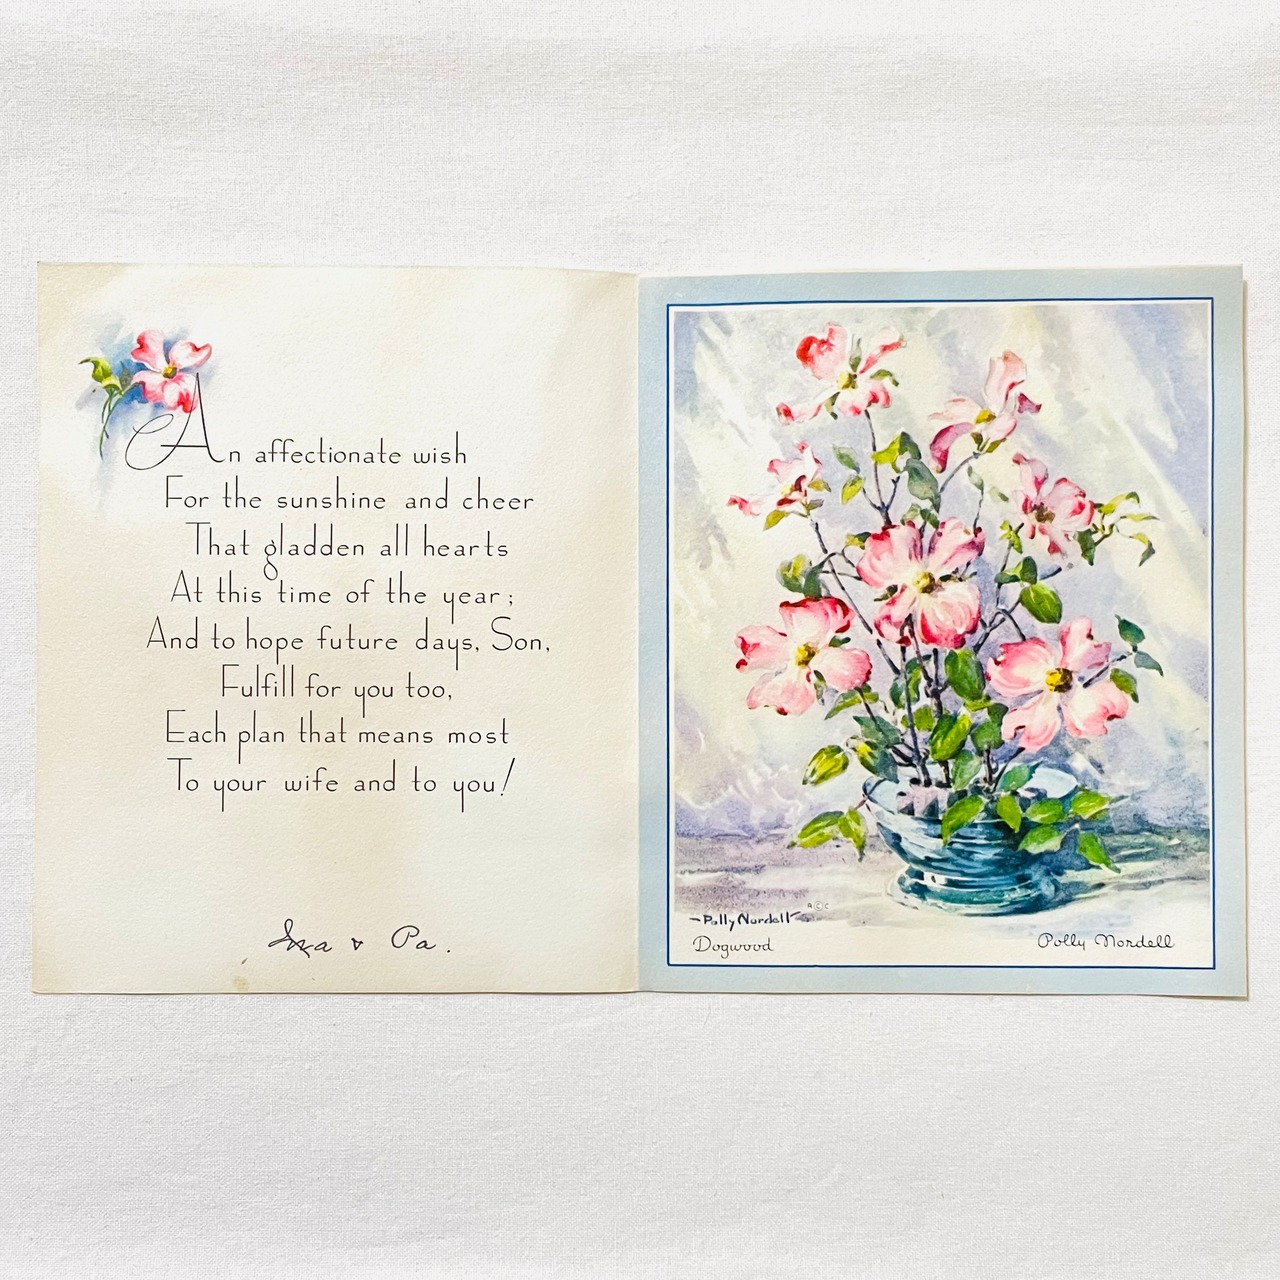 An affectionate wish
For the sunshine and cheer
That gladden all hearts
At this time of the year;
And to hope future days, Son,
Fulfill for you too,
Each plan that means most
To your wife and to you!
& Pa.
-Polly Nordell-
Dogwood
Polly Nordell